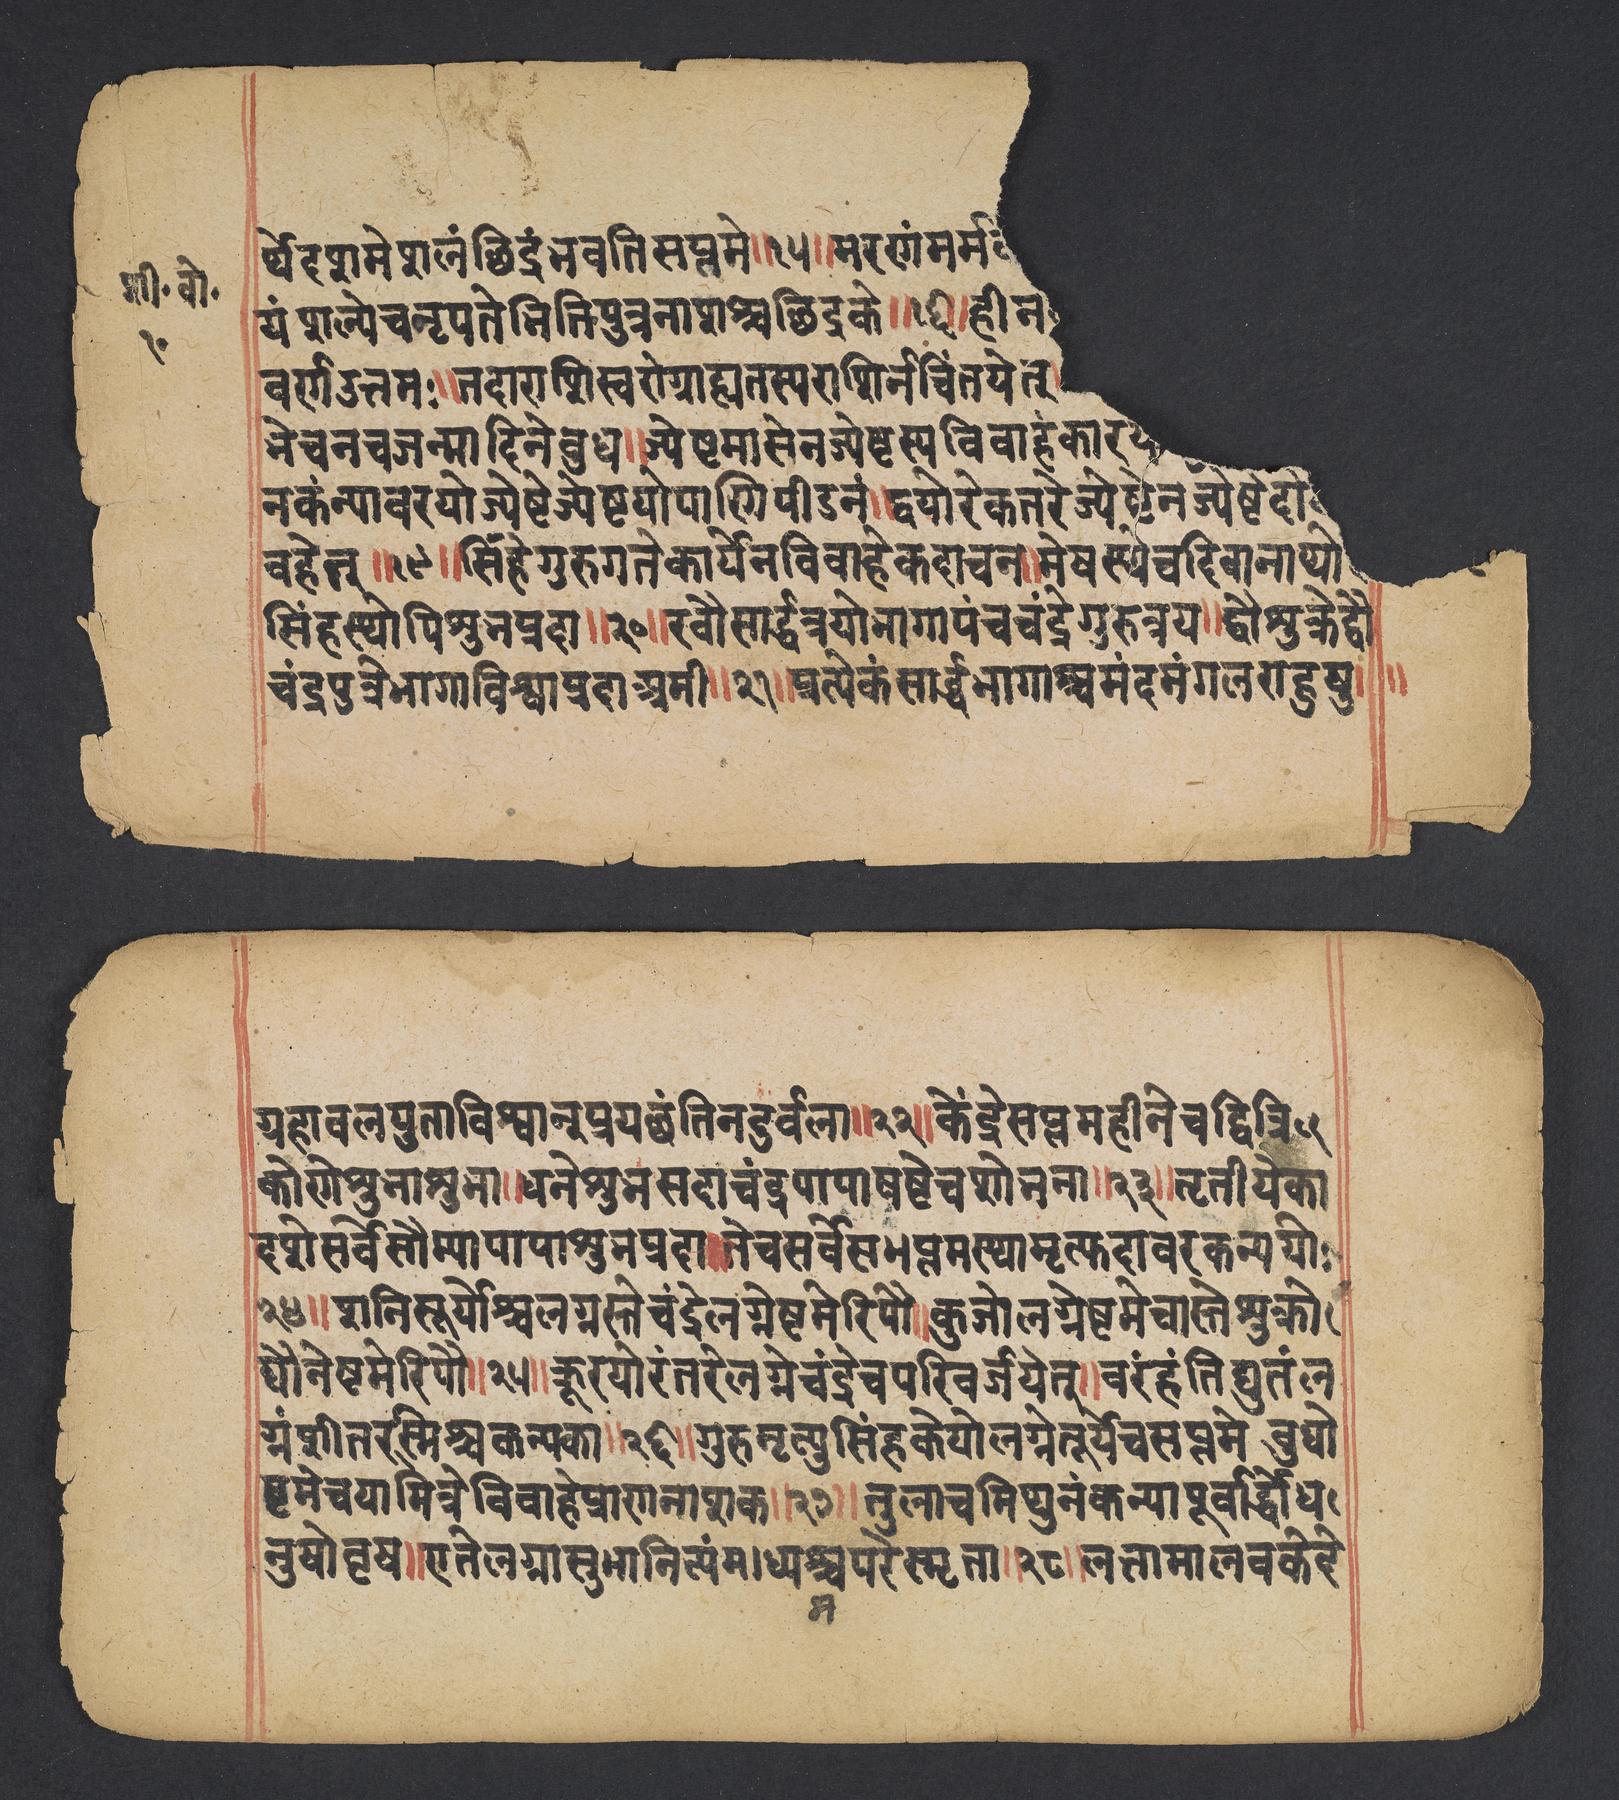 र्थेदशमेशलंछिद्रंभवतिसप्तमे॥१५॥मरणंमर्म
शी॰बो॰
२॰
यंशल्येचनृपतेर्भितिपुत्रनाशश्चछिद्रके॥१६॥हीन
वर्णउत्तमः॥तदाराशिस्वरोग्राह्यतस्यराशिर्नचिंतयेत्
भेचनचजन्मादिनेबुध॥ज्येष्टमासेनज्येष्टस्यविवाहंकारय
नकंन्यावरयोर्ज्येष्टेज्येष्टयोपाणिपीडनं॥द्वयोरेकतरेज्येष्टेनज्येष्टेदो
वहेत्॥१९॥सिंहेगुरुगतेकार्येनविवाहेकदाचन॥मेषस्थेचदिवानाथ्यो
सिंहस्थोपिशुभप्रदा॥२०॥रवौसार्द्धत्रयोभागापंचचंद्रेगुरुत्रय॥द्वौशुक्रेद्वौ
चंद्रपुत्रेभागाविश्वाप्रदाअमी॥२१॥प्रत्येकंसार्द्धभागाश्चमंदमंगलराहुषु॥
ग्रहावलयुताविश्वान्प्रयछंतिनदुर्वला॥२२॥केंद्रेसप्तमहीनेचद्वित्रि
कोणेशुभाशुभा॥धनेशुभसदाचंद्रपापाषष्टेचशोभना॥२३॥तृतीयेका
दशेसर्वेसौम्यापापाशुभप्रदा॥तेचसर्वेसभप्तमस्थामृत्फदावरकन्ययोः
२४॥शनिसूर्योश्चलग्नस्तेचंद्रेलग्नेष्टमेरिपौ॥कुजोलग्नेष्टमेचास्तेशुक्रो
द्यौनेष्टमेरिपौ॥२५॥क्रूरयोरंतरेलग्नेचंद्रेचपरिवर्जयेत्॥वरंहंतिद्युतंल
ग्नंशीतरस्मिश्चकन्यका॥२६॥गुरुमृत्युसिंहकेयोलग्नेतूर्येचसप्तमे बुधो
ष्टमेचयामित्रेविवाहेप्राणनाशक॥२७॥तुलाचमिथुनंकन्यापूर्वार्द्धोध
नुषोवृष॥एतेलग्नासुभानित्यंम।ध्यश्चपरेस्मृता॥२८॥लत्तामालवकेदे
म